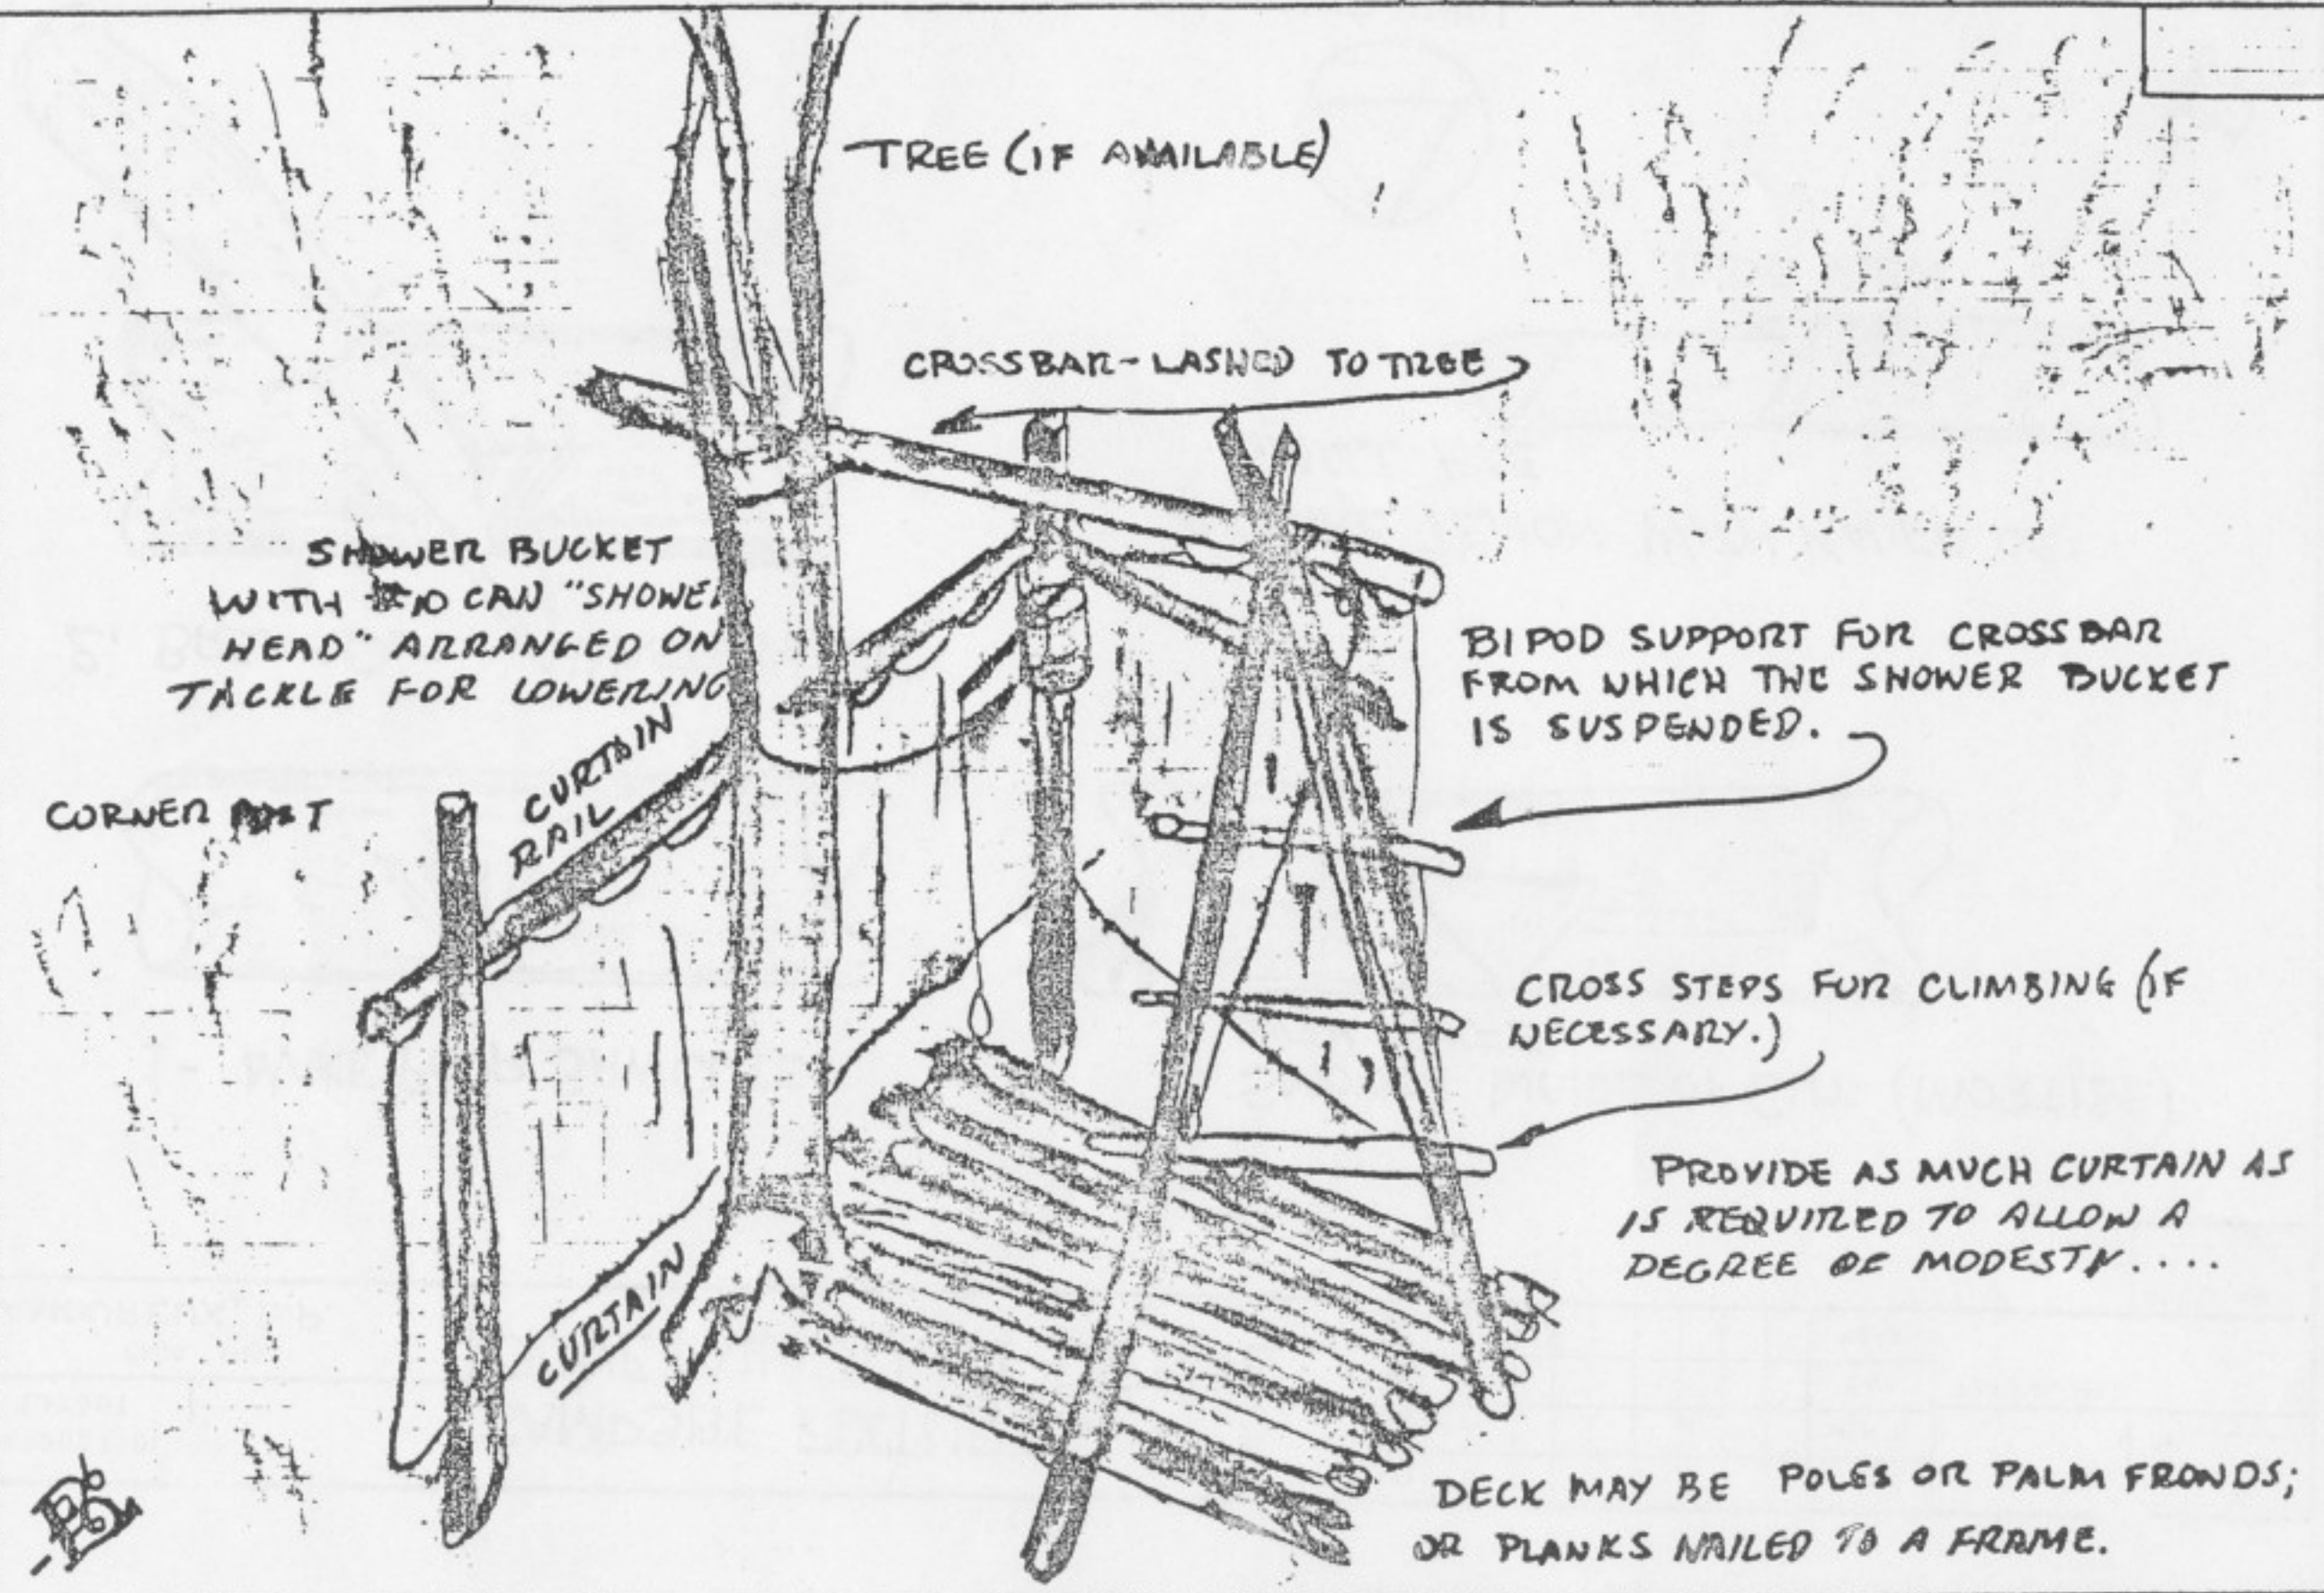 TREE (IF AVAILABLE)
CROSSBAR - LASHED TO TREE
SHOWER BUCKET
WITH #10 CAN "SHOWER
HEAD" ARRANGED ON
TACKLE FOR LOWERING
CURTAIN
RAIL
CORNER POST
BIPOD SUPPORT FOR CROSSBAR
FROM WHICH THE SHOWER BUCKET
IS SUSPENDED.
CROSS STEPS FOR CLIMBING (IF
NECESSARY.)
PROVIDE AS MUCH CURTAIN AS
IS REQUIRED TO ALLOW A
DEGREE OF MODESTY....
CURTAIN
DECK MAY BE POLES OR PALM FRONDS;
OR PLANKS NAILED TO A FRAME.